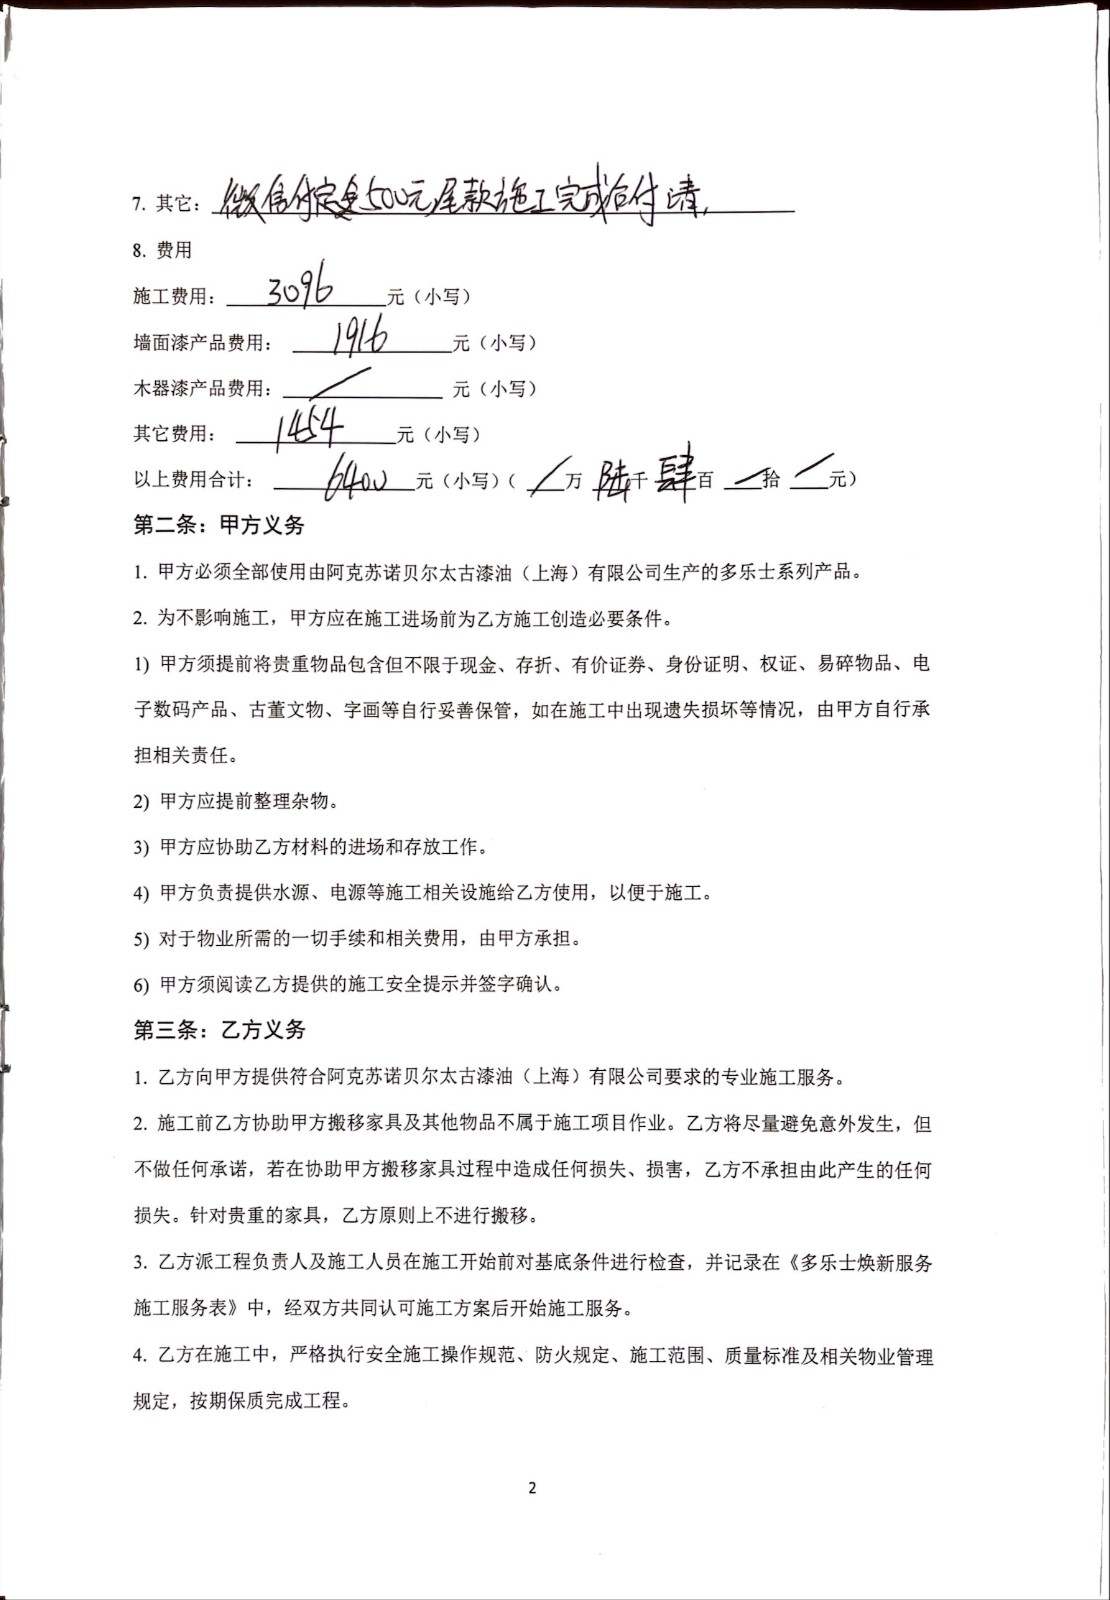 7. 其它：微信付定金500元尾款施工完成后付清.
8. 费用
施工费用：3096元（小写）
墙面漆产品费用：1916元（小写）
木器漆产品费用：/元（小写）
其它费用：1454元（小写）
以上费用合计：6400元（小写）（/万陆千肆百/拾/元）
第二条：甲方义务
1. 甲方必须全部使用由阿克苏诺贝尔太古漆油（上海）有限公司生产的多乐士系列产品。
2. 为不影响施工，甲方应在施工进场前为乙方施工创造必要条件。
1) 甲方须提前将贵重物品包含但不限于现金、存折、有价证券、身份证明、权证、易碎物品、电
子数码产品、古董文物、字画等自行妥善保管，如在施工中出现遗失损坏等情况，由甲方自行承
担相关责任。
2) 甲方应提前整理杂物。
3) 甲方应协助乙方材料的进场和存放工作。
4) 甲方负责提供水源、电源等施工相关设施给乙方使用，以便于施工。
5) 对于物业所需的一切手续和相关费用，由甲方承担。
6) 甲方须阅读乙方提供的施工安全提示并签字确认。
第三条：乙方义务
1. 乙方向甲方提供符合阿克苏诺贝尔太古漆油（上海）有限公司要求的专业施工服务。
2. 施工前乙方协助甲方搬移家具及其他物品不属于施工项目作业。乙方将尽量避免意外发生，但
不做任何承诺，若在协助甲方搬移家具过程中造成任何损失、损害，乙方不承担由此产生的任何
损失。针对贵重的家具，乙方原则上不进行搬移。
3. 乙方派工程负责人及施工人员在施工开始前对基底条件进行检查，并记录在《多乐士焕新服务
施工服务表》中，经双方共同认可施工方案后开始施工服务。
4. 乙方在施工中，严格执行安全施工操作规范、防火规定、施工范围、质量标准及相关物业管理
规定，按期保质完成工程。
2